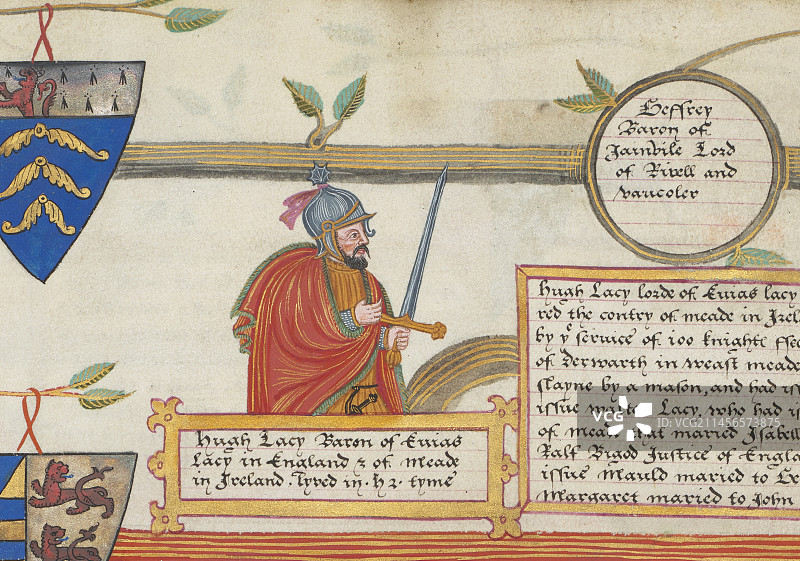 Geffrey
Baron of
Jainvile Lord
of Rivell and
vaucoler
Hugh Lacy lorde of Euias lacy
red the contry of meade in Irel
by yͤ seruice of 100 knightℓ ffee
of Derwarth in weast meade
slayne by a mason, and had iss
issue Lacy, who had is
of mea that maried Isabell
Ralf Bigod Iustice of Engla
issue Mauld maried to Ge
Margaret maried to John
Hugh Lacy Baron of Euias
Lacy in England & of meade
in Ireland. lyved in .h 2. tyme
VCG
VCG.COM
ID:VCG211456573875